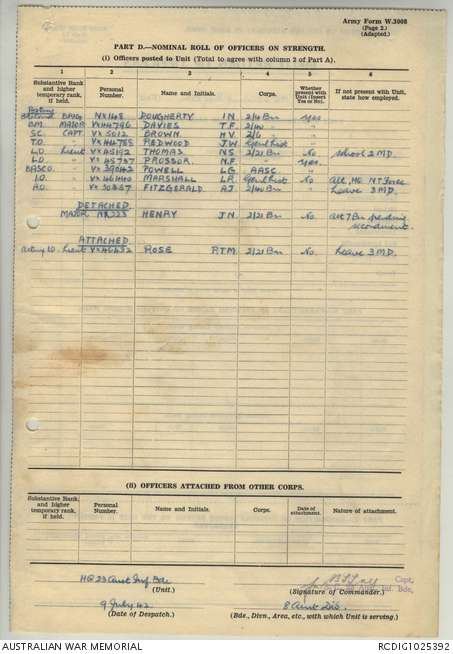 Army Form W.3008
(Page 2.)
(Adapted.)
PART D.—NOMINAL ROLL OF OFFICERS ON STRENGTH.
(i) Officers posted to Unit (Total to agree with column 2 of Part A).
1 2 3 4 5 6
Substantive Rank and higher temporary rank, if held. Personal Number. Name and Initials. Corps. Whether present with Unit (Insert Yes or No). If not present with Unit, state how employed.
BRIG NX148 DOUGHERTY IN 2/4 Bn yes
BM. MAJOR VX44796 DAVIES T.F. 2/40 " "
SC. CAPT VX5012 BROWN H.V. 2/6 " "
T.O. " REDWOOD J.W. "
L.O. Lieut THOMAS N.S. 2/21 Bn No School 2 MD.
L.O. " PROSSOR N.F. " Yes.
BASCO. " POWELL LG AASC "
I.O. " MARSHALL L.R. No Att. HQ NT Force
A.O. " FITZGERALD AJ 2/40 Bn " Leave 3 MD.
DETACHED.
MAJOR NX223 HENRY J.N 2/21 Bn No att 7 Bn pending
secondment.
ATTACHED
Lieut ROSE R.T.M. 2/21 Bn No. Leave 3 MD.
(ii) OFFICERS ATTACHED FROM OTHER CORPS.
Substantive Rank and higher temporary rank, if held. Personal Number. Name and Initials. Corps. Date of attachment. Nature of attachment.
HQ 23 Aust Inf Bde
(Unit.)
Capt.
Aust. Inf. Bde,
(Signature of Commander.)
9 July 42
(Date of Despatch.)
8 Aust Div.
(Bde., Divn., Area, etc., with which Unit is serving.)
AUSTRALIAN WAR MEMORIAL
RCDIG1025392